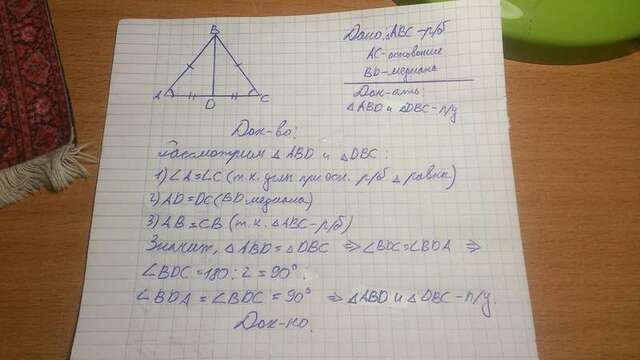 B
A
D
C
Дано: △ABC - р/б
AC - основание
BD - медиана
Док-ать:
△ABD и △DBC - п/у
Док-во:
Рассмотрим △ABD и △DBC:
1) ∠A=∠C (т.к. углы при осн. р/б △ равны)
2) AD=DC (BD медиана)
3) AB=CB (т.к. △ABC-р/б)
Значит, △ABD=△DBC ⇒ ∠BDC=∠BDA ⇒
∠BDC=180:2=90°.
∠BDA=∠BDC=90° ⇒ △ABD и △DBC-п/у.
Док-но.